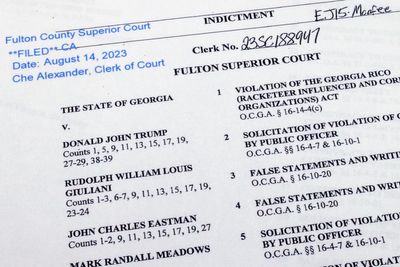 INDICTMENT
EJ15-McAfee
Fulton County Superior Court
**FILED** CA
Date: August 14, 2023
Che Alexander, Clerk of Court
Clerk No. 23SC188947
FULTON SUPERIOR COURT
THE STATE OF GEORGIA
V.
DONALD JOHN TRUMP
Counts 1, 5, 9, 11, 13, 15, 17, 19,
27-29, 38-39
RUDOLPH WILLIAM LOUIS
GIULIANI
Counts 1-3, 6-7, 9, 11, 13, 15, 17, 19,
23-24
JOHN CHARLES EASTMAN
Counts 1-2, 9, 11, 13, 15, 17, 19, 27
MARK RANDALL MEADOWS
1 VIOLATION OF THE GEORGIA RICO
(RACKETEER INFLUENCED AND COR
ORGANIZATIONS) ACT
O.C.G.A. § 16-14-4(c)
2 SOLICITATION OF VIOLATION OF O
BY PUBLIC OFFICER
O.C.G.A. §§ 16-4-7 & 16-10-1
3 FALSE STATEMENTS AND WRITI
O.C.G.A. § 16-10-20
4 FALSE STATEMENTS AND WRIT
O.C.G.A. § 16-10-20
5 SOLICITATION OF VIOLATION
BY PUBLIC OFFICER
O.C.G.A. §§ 16-4-7 & 16-10-1